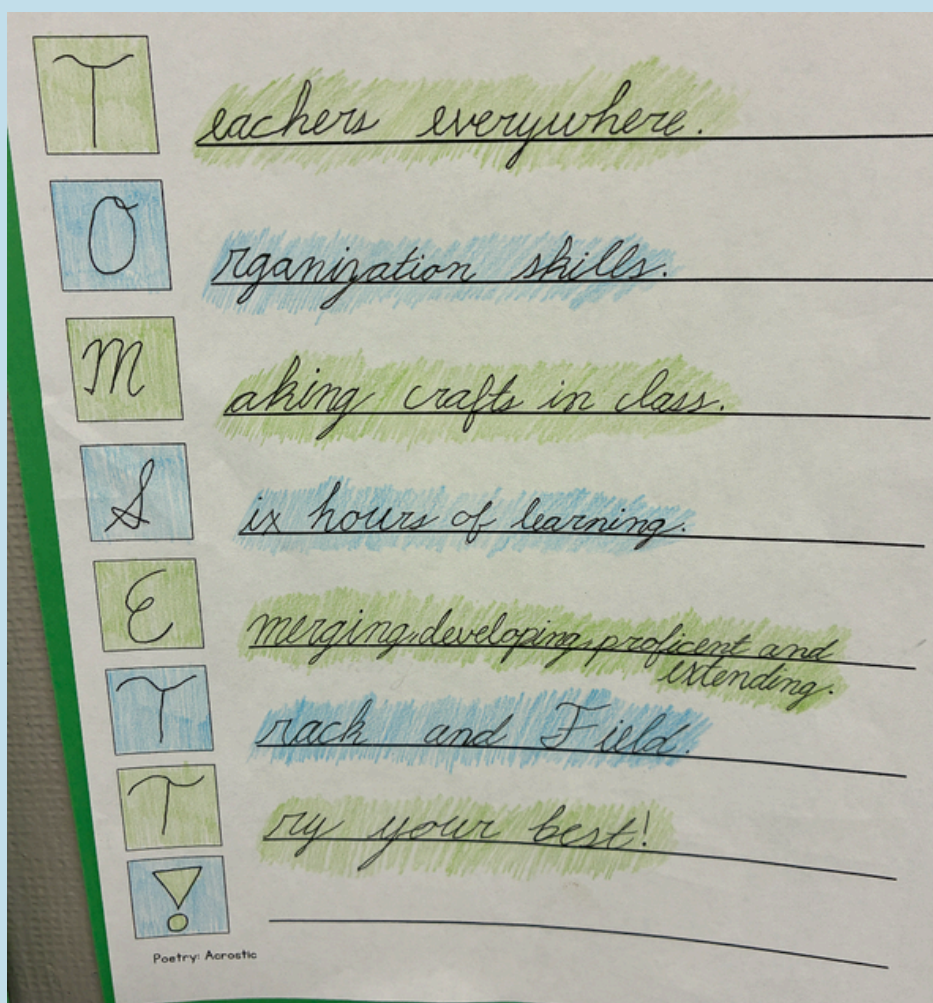 Teachers everywhere.
Organization skills.
Making crafts in class.
Six hours of learning.
Emerging, developing, proficent and
extending.
Track and Field.
Try your best!
!
Poetry: Acrostic